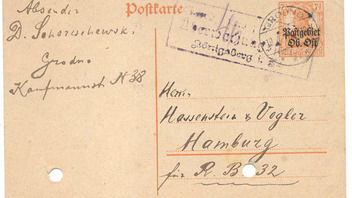 Postkarte
Absender
D. Schorschewski.
Grodno
Kaufmannst. N 38
Königsberg i.
7½
Postgebiet
Ob. Ost
Herrn
Hassenstein & Vogler
Hamburg
für R. B 32